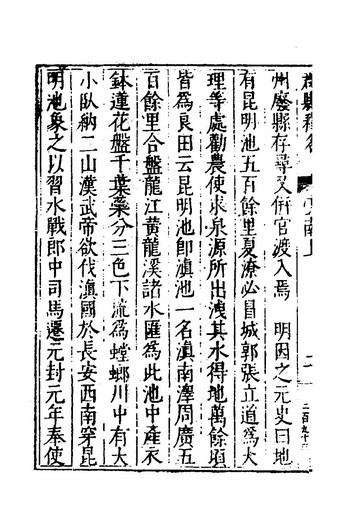 州廢縣存尋又併官渡入焉　明因之元史曰地
有昆明池五百餘里夏潦必冒城郭張立道爲大
理等處勸農使求泉源所出洩其水得地萬餘頃
皆爲良田云昆明池卽滇池一名滇南澤周廣五
百餘里合盤龍江黄龍溪諸水匯爲此池中產衣
鉢蓮花盤千葉蘂分三色下流爲螳螂川中有大
小臥納二山漢武帝欲伐滇國於長安西南穿昆
明池象之以習水戰郎中司馬遷元封元年奉使